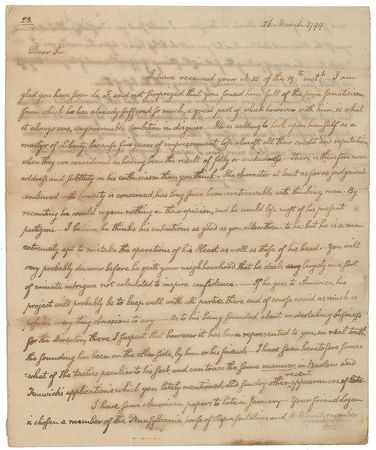 28.
26 March 1799
Dear Sir
I have received your N. 15. of the 19th. inst. I am
glad you have seen de F. and not surprized that you found him full of the same fanaticism
from which he has already suffered so much, a great part of which however with him, is what
it always was, ungovernable ambition in disguise. He is willing to look upon himself as a
martyr of liberty, because five years of imprisonment lose almost all their credit and reputation,
when they are considered as having been the result of folly or wickedness. There is therefore more
address and subtlety in his enthusiasm than you think. His character at least as far as judgment
combined with honesty is concerned, has long since been irretrievable with thinking men. By
recanting he would regain nothing in their opinion, and he would lose most of his present
partizans. I believe he thinks his intentions as good as you allow them to be; but he is a man
extremely apt to mistake the operations of his Heart as well as those of his head. You will
very probably discover before he quits your neighbourhood that he deals largely in a sort
of minute intrigue not calculated to inspire confidence. If he goes to America, his
project will probably be to keep well with all parties there and of course avoid as much as
possible every thing obnoxious to any. As to his being sounded about undertaking business
for the Directory there I suspect that however it has been represented to you, in real truth
the sounding has been on the other side, by him or his friends. I have seen heretofore somewhat
of the tactics peculiar to his sect, and can trace the same manner, in Barlow and
Fenwick's applications which you lately mentioned and sundry other recent appearances of
I have seen American papers to late in January. Your friend Logan
is chosen a member of the Pennsylvania house of Representatives, and W. Blount, member